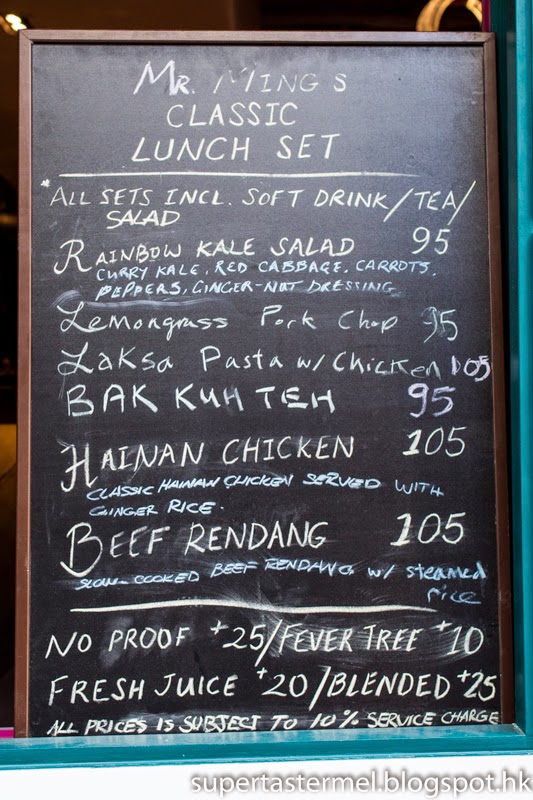 MR. MING S
CLASSIC
LUNCH SET
*ALL SETS INCL. SOFT DRINK/TEA/
SALAD
RAINBOW KALE SALAD 95
CURRY KALE, RED CABBAGE, CARROTS,
PEPPERS, GINGER-NUT DRESSING
Lemongrass Pork Chop 95
Laksa Pasta w/ Chicken 105
BAK KUH TEH 95
HAINAN CHICKEN 105
CLASSIC HAINAN CHICKEN SERVED WITH
GINGER RICE.
BEEF RENDANG 105
SLOW-COOKED BEEF RENDANG w/ steamed
rice
NO PROOF +25/FEVER TREE +10
FRESH JUICE +20/BLENDED +25
ALL PRICES IS SUBJECT TO 10% SERVICE CHARGE
supertastermel.blogspot.hk